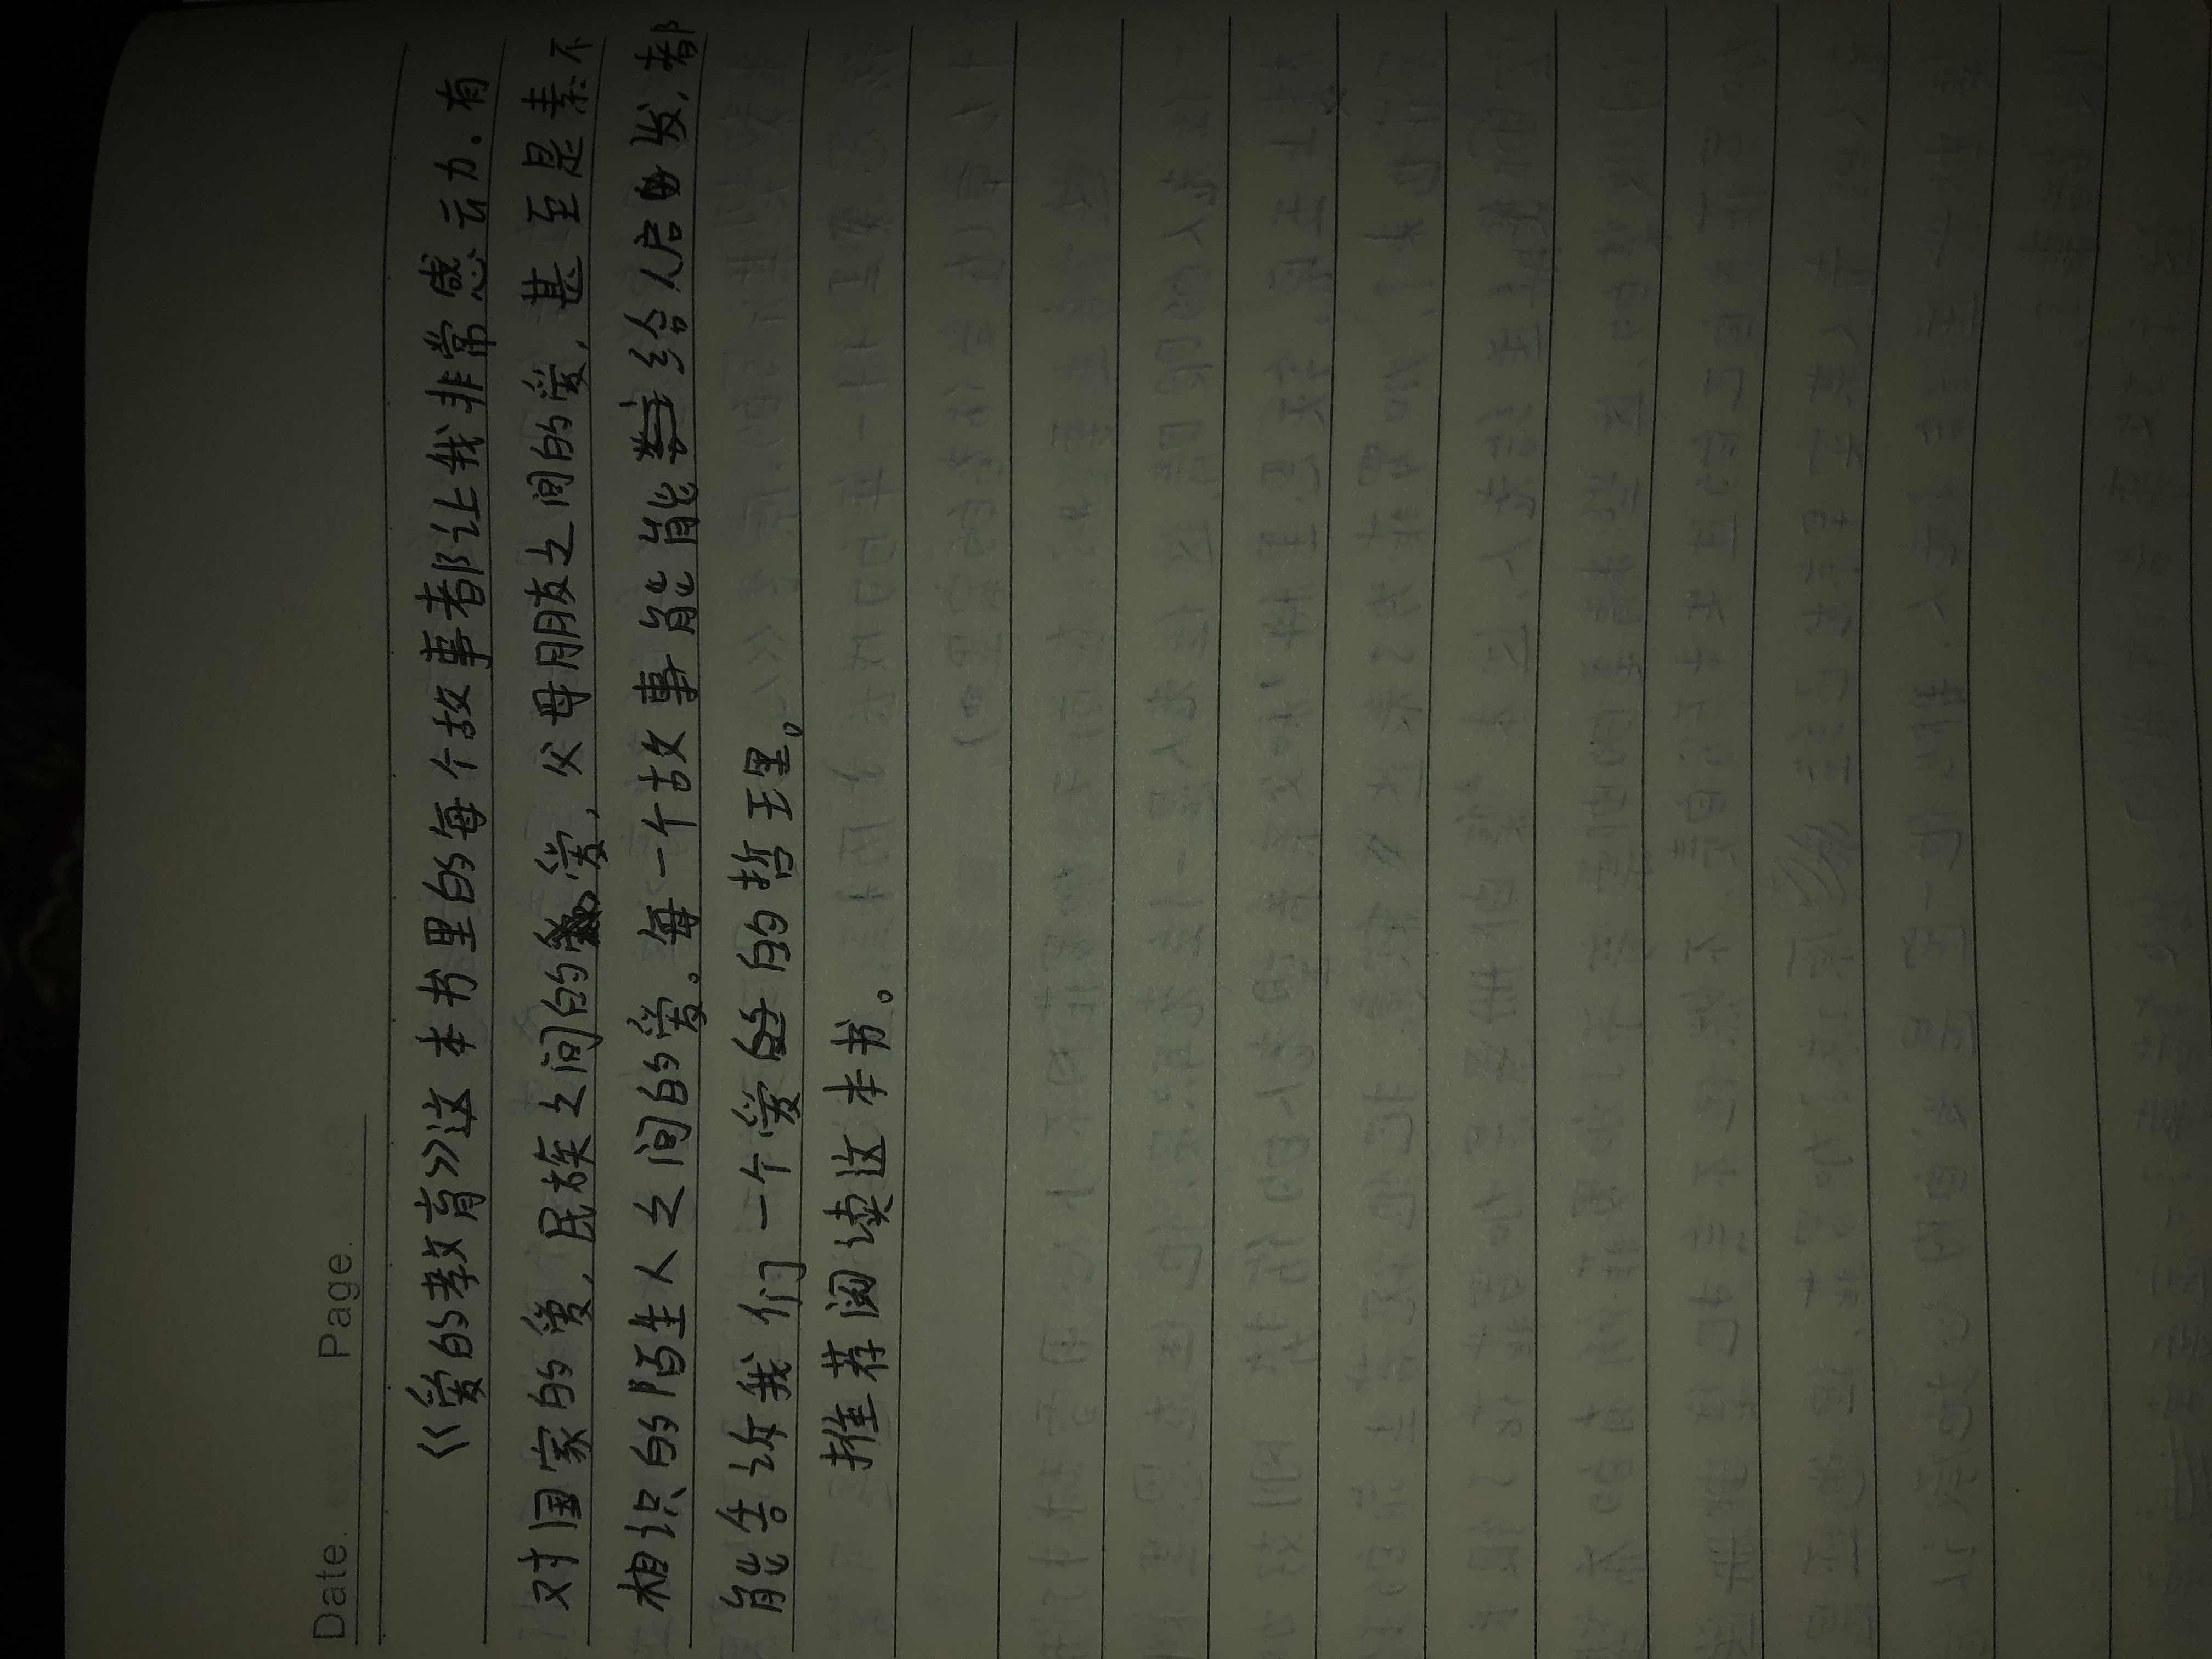 Date. Page.
《爱的教育》这本书里的每个故事都让我非常感动.有
对国家的爱,民族之间的爱,父母朋友之间的爱,甚至是素不
相识的陌生人之间的爱。每一个故事能能给人启发,都
能告诉我们一个爱的的哲理。
推荐阅读这本书。